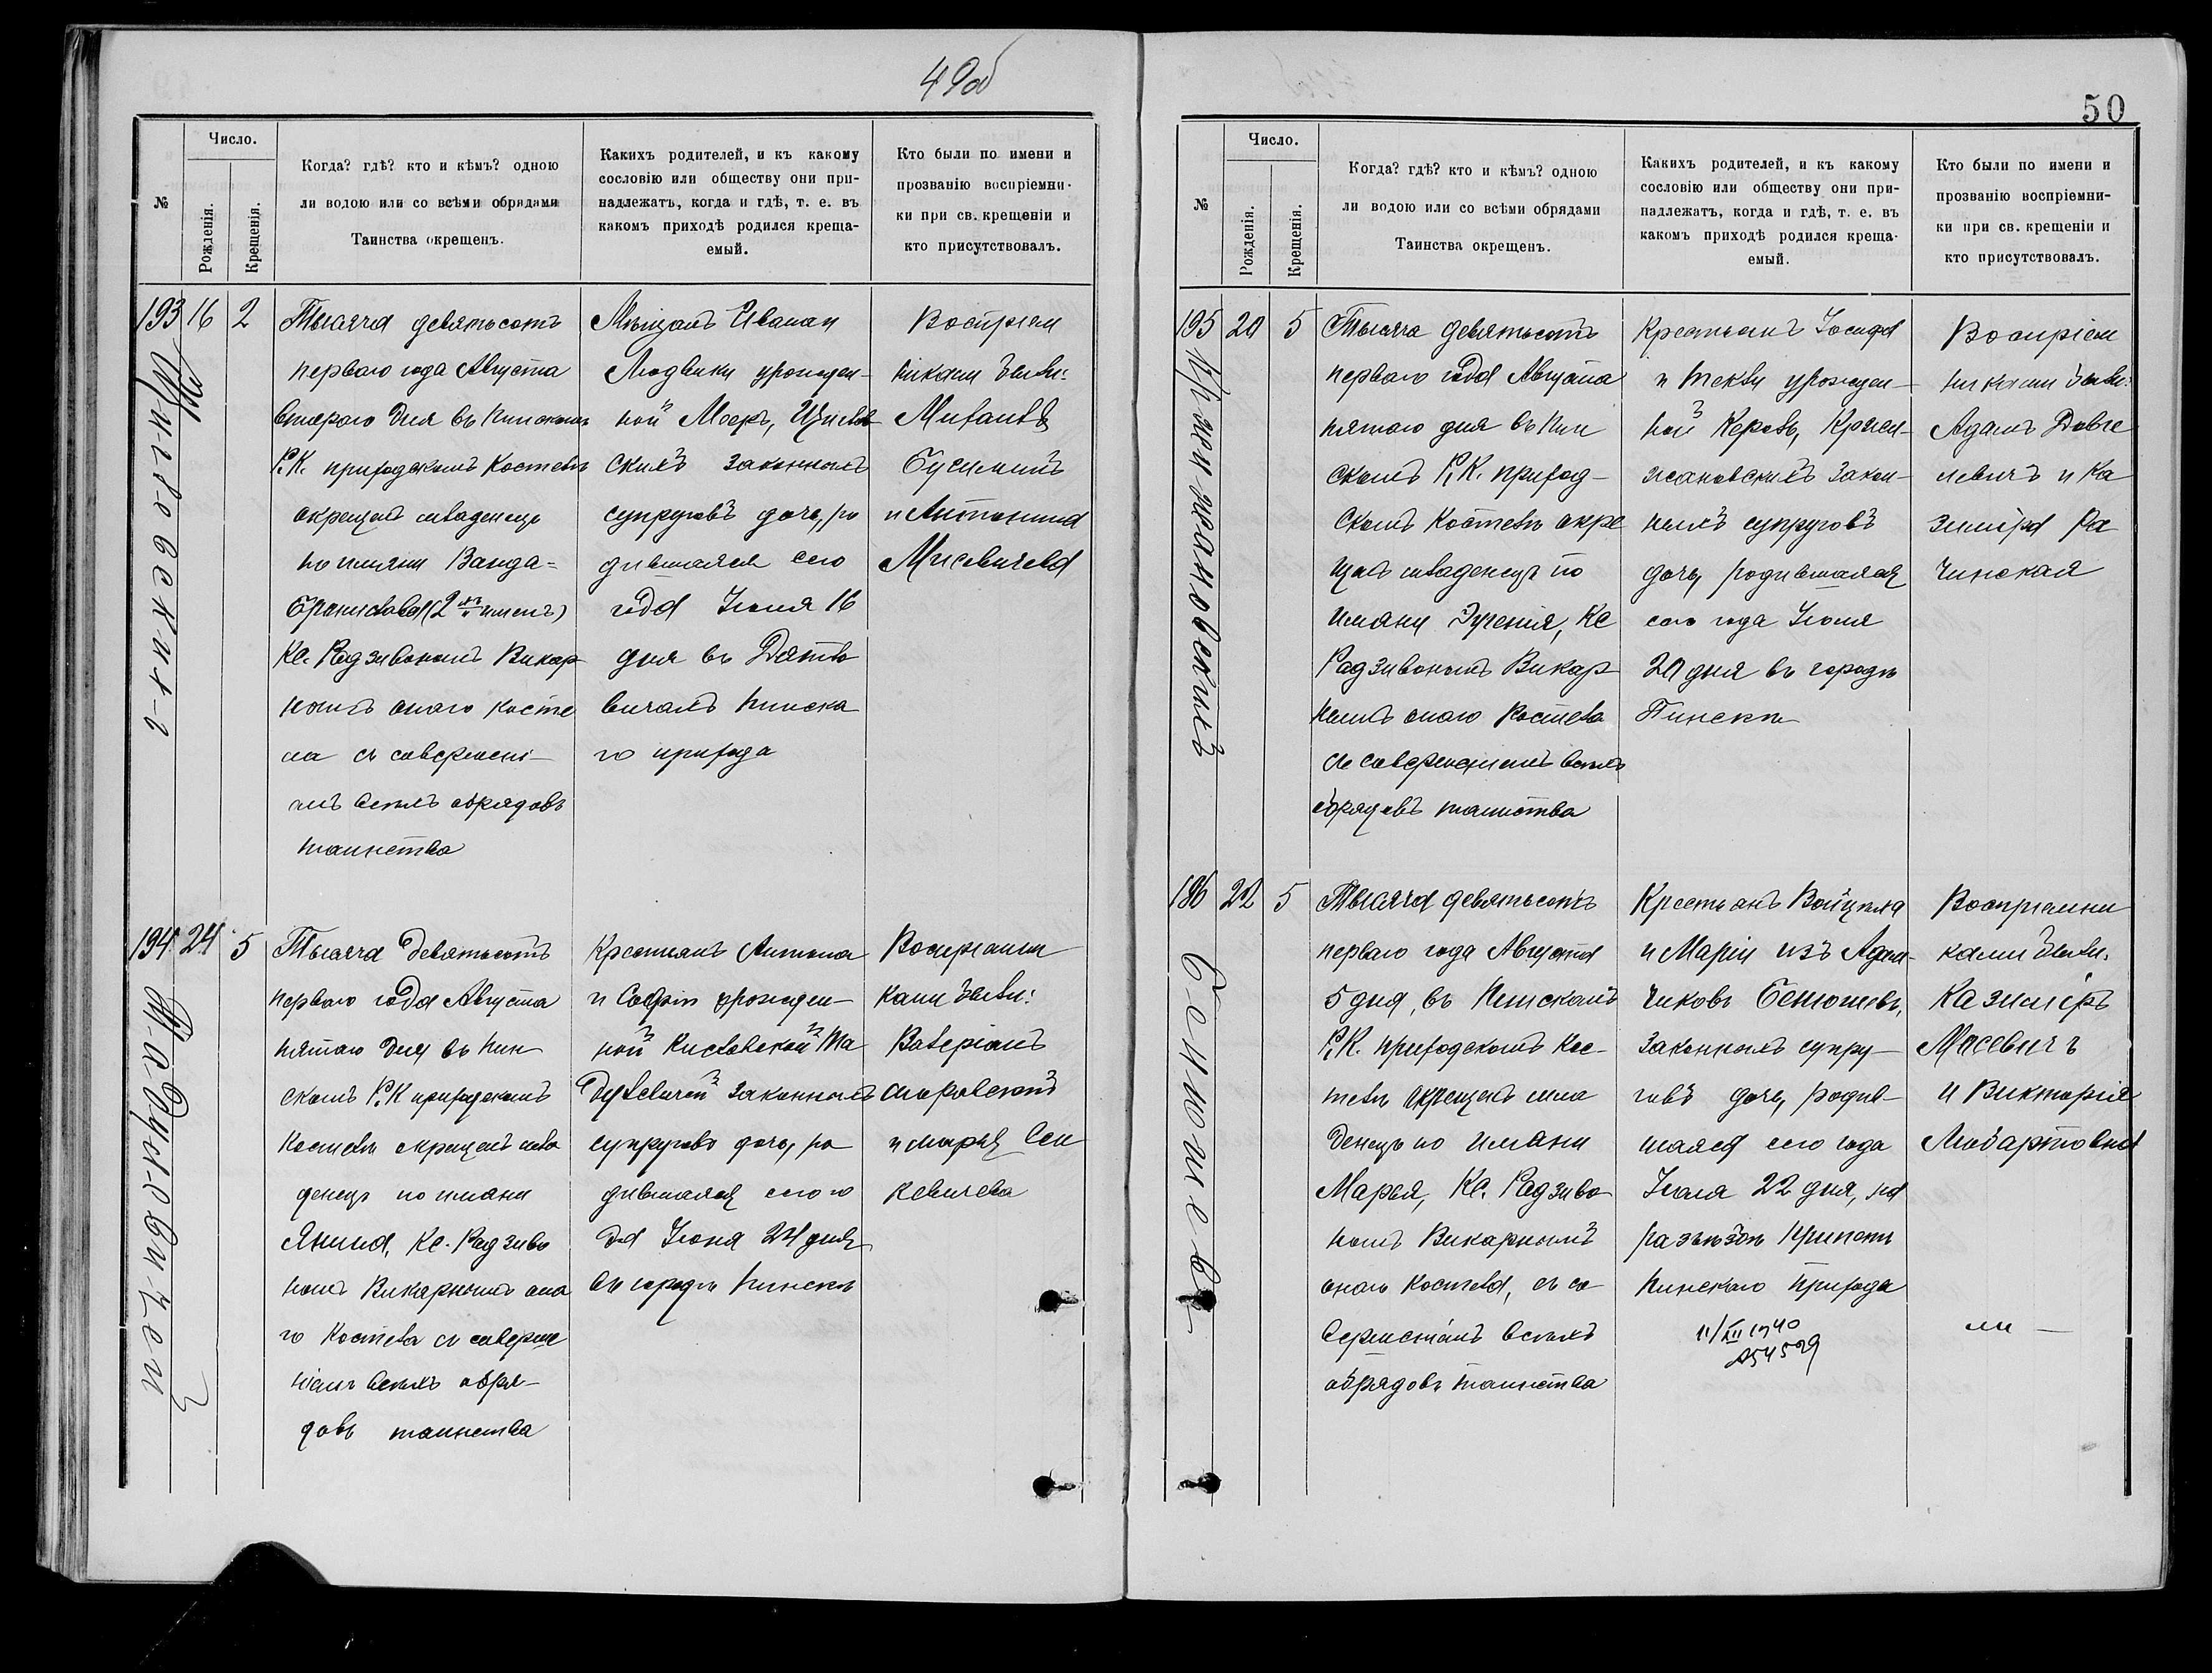 49об
№
Число.
Рожденія.
Крещенія.
Когда? гдѣ? кто и кѣмъ? одною
ли водою или со всѣми обрядами
Таинства окрещенъ.
Какихъ родителей, и къ какому
сословію или обществу они при-
надлежатъ, когда и гдѣ, т. е. въ
какомъ приходѣ родился креща-
емый.
Кто были по имени и
прозванію воспріемни-
ки при св. крещеніи и
кто присутствовалъ.
193
16
2
Тысяча девятьсотъ
перваго года Августа
второго дня въ Пинскомъ
Р. К. приходскомъ костелѣ
окрещенъ младенецъ
по имяни Ванда=
Бронислава (2 имень)
Кс. Радзивономъ Викар
нымъ онаго косте
ла съ совершені-
емъ всѣхъ обрядовъ
таинства
Мѣщанъ Ивана и
Людвики урожден-
ной
скихъ законныхъ
супруговъ дочь, ро
дившаяся сего
года Іюля 16
дня въ Дятло
вичахъ Пинска
го прихода
Воспріем
никами были:
Михаилъ
и Антонина
Мисевичева
194
24
5
Тысяча девятьсотъ
перваго года Августа
пятаго дня въ Пин
скомъ Р. К приходскомъ
Костелѣ окрещенъ мла
денецъ по имяни
Янина, Кс. Радзиво
номъ Викарнымъ она
го Костела съ соверше
ніемъ всѣхъ обря-
довъ таинства
Крестьянъ Антона
и Софіи урожден-
ной
законныхъ
супруговъ дочь, ро
дившаяся сего го
да Іюня 24 дня
въ городѣ Пинскѣ
Воспріемни
ками были:
Валеріанъ
и Марья Сен
кевичева
50
№
Число.
Рожденія.
Крещенія.
Когда? гдѣ? кто и кѣмъ? одною
ли водою или со всѣми обрядами
Таинства окрещенъ.
Какихъ родителей, и къ какому
сословію или обществу они при-
надлежатъ, когда и гдѣ, т. е. въ
какомъ приходѣ родился креща-
емый.
Кто были по имени и
прозванію воспріемни-
ки при св. крещеніи и
кто присутствовалъ.
195
20
5
Кржижановскихъ
Тысяча девятьсотъ
перваго года Августа
пятаго дня въ Пин
скомъ Р. К. приход-
скомъ Костелѣ окре
щенъ младенецъ по
имяни Эугенія, Кс
Радзивономъ Викар
нымъ онаго Костела
съ совершеніемъ всѣхъ
обрядовъ таинства
Крестьянъ Іосифа
и Теклы урожден-
ной
жановскихъ закон-
ныхъ супруговъ
дочь, родившаяся
сего года Іюля
20 дня въ городѣ
Пинскѣ
Воспріем
никами были:
Адамъ
и Ка
зиміра Ра
чинская
196
22
5
Тысяча девятьсотъ
перваго года Августа
5 дня, въ Пинскомъ
Р. К. приходскомъ Кос-
телѣ окрещенъ мла
денецъ по имяни
Марья, Кс. Радзиво
номъ Викарнымъ
онаго Костела, съ со
вершеніемъ всѣхъ
обрядовъ таинства
Крестьянъ
и Маріи изъ Адам-
чиковъ Бенюшевъ,
законныхъ супру-
говъ дочь, родив-
шаяся сего года
Іюля 22 дня, на
разъѣздѣ Припять
Пинскаго прихода
11/XII 1940
Воспріемни
ками были:
Казиміръ
Масевичъ
и Викторія